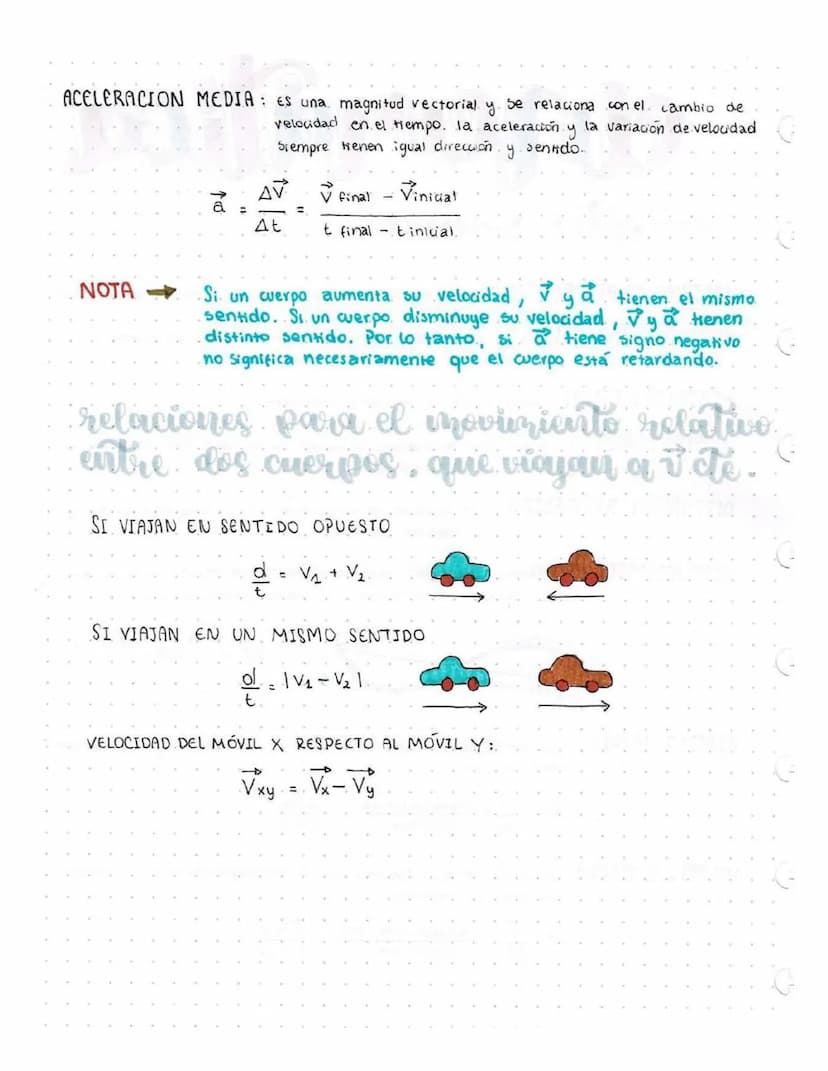 ACELERACION MEDIA: ES una magnitud vectorial y se relaciona con el cambio de
velocidad en el tiempo. la aceleración y la variación de velocidad
siempre tienen igual dirección y sentido.
a⃗ = ΔV⃗ / Δt = V⃗ final - V⃗inicial / t final - t inicial
NOTA → Si un cuerpo aumenta su velocidad, v⃗ y a⃗ tienen el mismo
sentido. Si un cuerpo disminuye su velocidad, v⃗ y a⃗ tienen
distinto sentido. Por lo tanto, si a⃗ tiene signo negativo
no significa necesariamente que el cuerpo está retardando.
relaciones para el movimiento relativo
entre dos cuerpos, que viajan a v⃗ cte.
SI VIAJAN EN SENTIDO OPUESTO
d/t = V1 + V2
SI VIAJAN EN UN MISMO SENTIDO
d/t = |V1 - V2|
VELOCIDAD DEL MÓVIL X RESPECTO AL MÓVIL Y:
V⃗xy = V⃗x - V⃗y